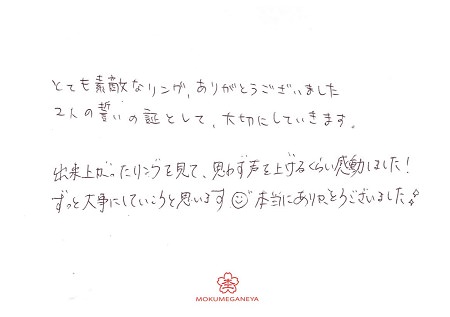 とても素敵なリング、ありがとうございました
2人の誓いの証として、大切にしていきます。
出来上がったリングを見て、思わず声を上げるくらい感動しました!
ずっと大事にしていこうと思います☺本当にありがとうございました。
MOKUMEGANEYA